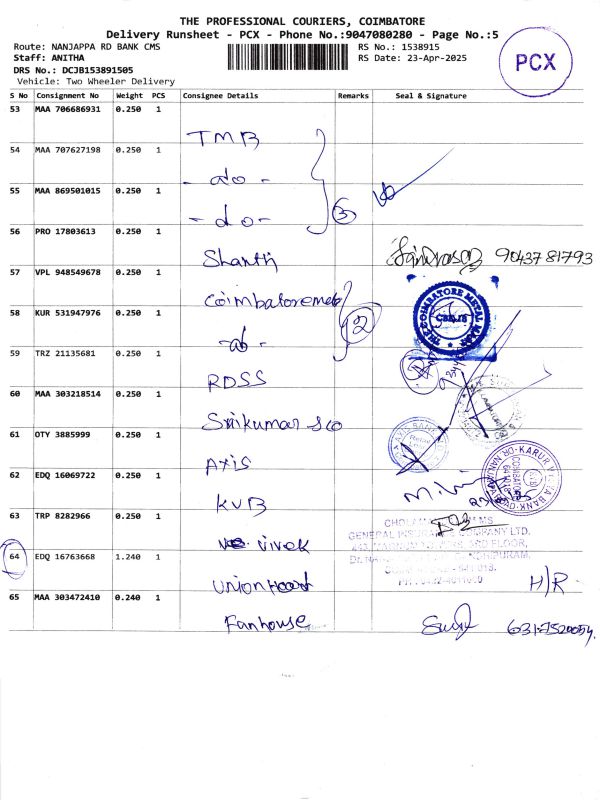 THE PROFESSIONAL COURIERS, COIMBATORE
Delivery Runsheet - PCX - Phone No.:9047080280 - Page No.:5
Route: NANJAPPA RD BANK CMS
RS No.: 1538915
Staff: ANITHA
RS Date: 23-Apr-2025
DRS No.: DCJB153891505
Vehicle: Two Wheeler Delivery
PCX
S No Consignment No Weight PCS Consignee Details Remarks Seal & Signature
53 MAA 706686931 0.250 1
TMB
54 MAA 707627198 0.250 1
- do -
55 MAA 869501015 0.250 1
- do -
3
56 PRO 17803613 0.250 1
Shanthi
9043781793
57 VPL 948549678 0.250 1
58 KUR 531947976 0.250 1
- do -
2
59 TRZ 21135681 0.250 1
RDSS
60 MAA 303218514 0.250 1
Srikumar sco
61 OTY 3885999 0.250 1
AXIS
62 EDQ 16069722 0.250 1
KVB
63 TRP 8282966 0.250 1
vivek
GENERAL INSURANCE COMPANY LTD.
64 EDQ 16763668 1.240 1
H/R
65 MAA 303472410 0.240 1
Fanhouse